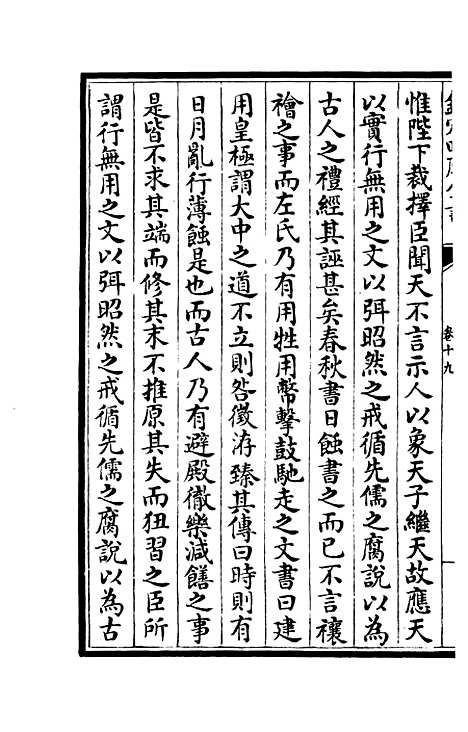 卷十九
惟陛下裁擇臣聞天不言示人以象天子繼天故應天
以實行無用之文以弭昭然之戒循先儒之腐說以為
古人之禮經其誣甚矣春秋書日蝕書之而已不言禳
禬之事而左氏乃有用牲用幣擊鼓馳走之文書曰建
用皇極謂大中之道不立則咎徵洊臻其傳曰時則有
日月亂行薄蝕是也而古人乃有避殿徹樂減饍之事
是皆不求其端而修其末不推原其失而狃習之臣所
謂行無用之文以弭昭然之戒循先儒之腐說以為古